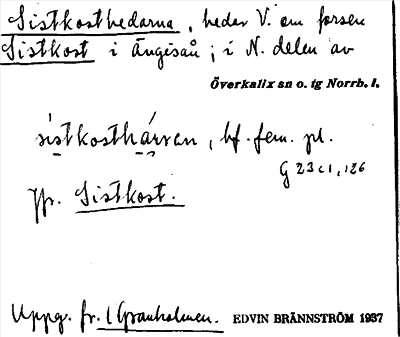 Sistkosthedarna, hedar V. om forsen
Sistkost i Ängesån; i N. delen av
Överkalix sn o. tg Norrb. l.
sistkosthárran, bf. fem. pl.
G 23 c 1, 126
Jfr. Sistkost.
Uppg. fr. Granholmen. EDVIN BRÄNNSTRÖM 1937